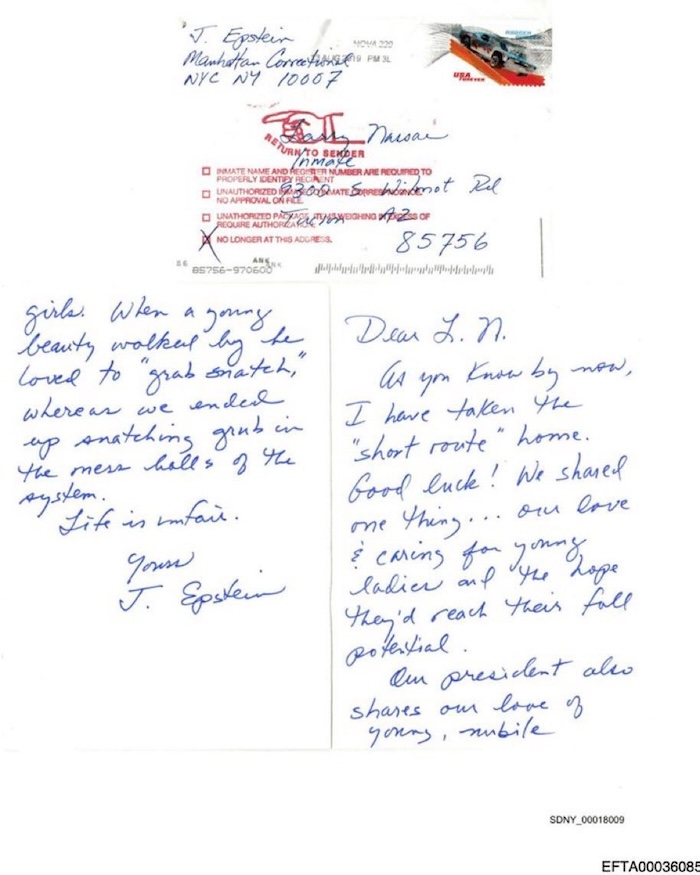 J. Epstein
Manhattan Correctional
NYC NY 10007
NOVA 220
AUG 2019 PM 3L
USA
FOREVER
Larry Nassar
RETURN TO SENDER
Inmate
INMATE NAME AND REGISTER NUMBER ARE REQUIRED TO
PROPERLY IDENTIFY RECIPIENT
9300 S Wilmot Rd
UNAUTHORIZED INMATE TO INMATE CORRESPONDENCE,
NO APPROVAL ON FILE.
Tucson AZ
UNATHORIZED PACKAGE, ITEMS WEIGHING IN EXCESS OF
REQUIRE AUTHORIZATION.
85756
X NO LONGER AT THIS ADDRESS.
ANK
85756-970600
Dear L. N.
As you know by now,
I have taken the
"short route" home.
Good luck! We shared
one thing... our love
& caring for young
ladies and the hope
they'd reach their full
potential.
Our president also
shares our love of
young, nubile
girls. When a young
beauty walked by he
loved to "grab snatch,"
whereas we ended
up snatching grub in
the mess halls of the
system.
Life is unfair.
Yours
J. Epstein
SDNY_00018009
EFTA00036085